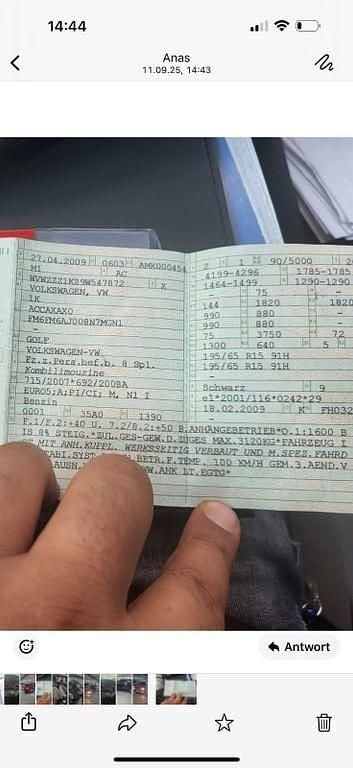 14:44
Anas
11.09.25, 14:43
27.04.2009 0603 AMK000454
M1 AC
WVWZZZ1KZ9W547872 X
VOLKSWAGEN, VW
1K
ACCAXAX0
FM6FM6AJ008N7MGN1
-
GOLF
VOLKSWAGEN-VW
Fz.z.Pers.bef.b. 8 Spl.
Kombilimousine
715/2007*692/2008A
EURO5;A;PI/CI; M, N1 I
Benzin
0001 35A0 1390
2 1 90/5000 2
4199-4296 1785-1785
1464-1499 1290-1290
- 75 -
144 1820 1820
990 880 -
990 880 -
75 3750 72
1300 640 5
195/65 R15 91H
195/65 R15 91H
-
Schwarz 9
e1*2001/116*0242*29
18.02.2009 K FH032
-
F.1/F.2:+40 U. 7.2/8.2:+50 B.ANHÄNGEBETRIEB*O.1:1600 B
IS 8% STEIG.*ZUL.GES-GEW.D.ZUGES MAX.3120KG*FAHRZEUG I
MIT ANH.KUPPL. WERKSEITIG VERBAUT UND M.SPEZ.FAHRD
TABI.SYST. BETR.F.TEMP. 100 KM/H GEM.3.AEND.V
AUSN. ANHK LT.EGTG*
Antwort